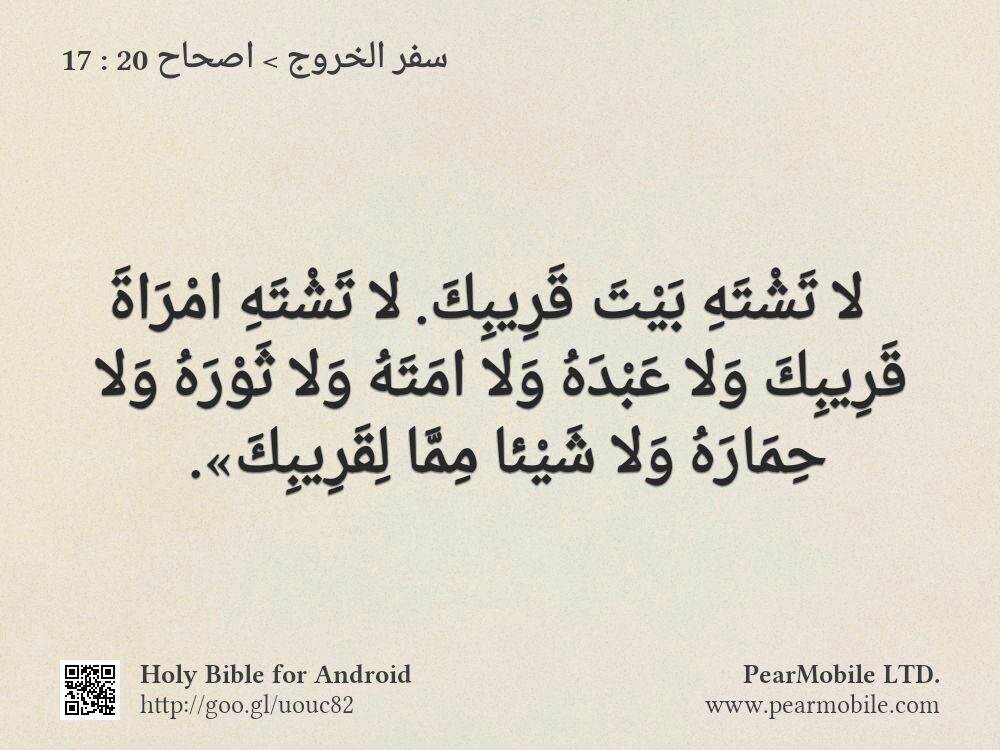 سفر الخروج > اصحاح 20 : 17
لا تَشْتَهِ بَيْتَ قَرِيبِكَ. لا تَشْتَهِ امْرَاةَ
قَرِيبِكَ وَلا عَبْدَهُ وَلا امَتَهُ وَلا ثَوْرَهُ وَلا
حِمَارَهُ وَلا شَيْئا مِمَّا لِقَرِيبِكَ».
Holy Bible for Android
http://goo.gl/uouc82
PearMobile LTD.
www.pearmobile.com